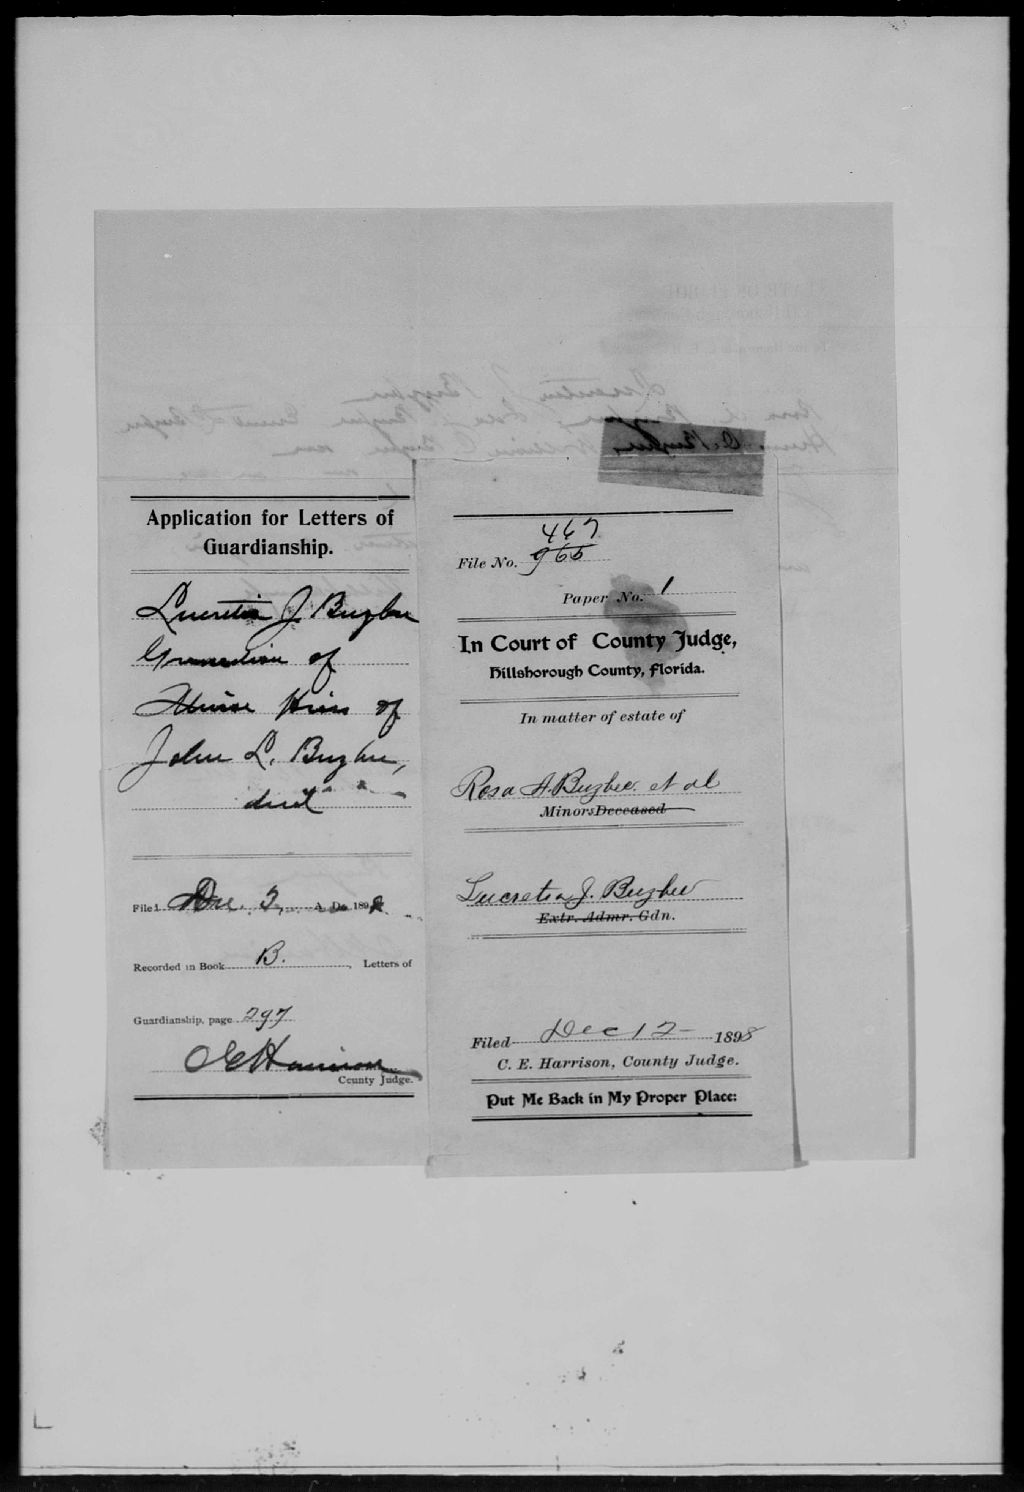 Application for Letters of
Guardianship.
Lucretia J. Buzbee
Guardian of
Minor Heirs of
John L. Buzbee,
decd
Filed Dec. 3, A. D. 1898
Recorded in Book B., Letters of
Guardianship, page 297
C E Harrison
County Judge.
467
File No. 966
Paper No. 1
In Court of County Judge,
Hillsborough County, Florida.
In matter of estate of
Rosa A. Buzbee. et al
Minors Deceased
Lucretia J. Buzbee
Extr. Admr. Gdn.
Filed Dec 12 1898
C. E. Harrison, County Judge.
Put Me Back in My Proper Place: